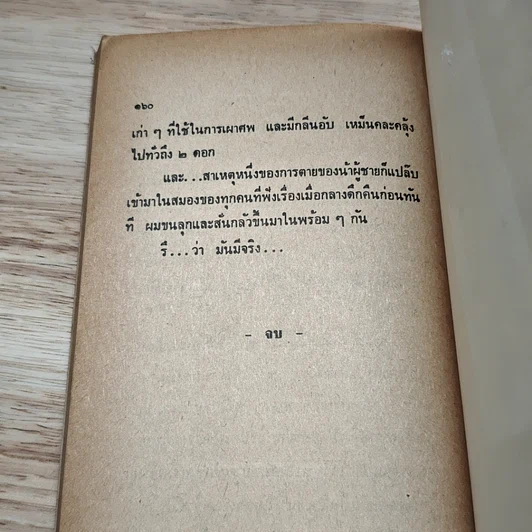 ๑๖๐
เก่า ๆ ที่ใช้ในการเผาศพ และมีกลิ่นอับ เหม็นคละคลุ้ง
ไปทั่วถึง ๒ ดอก
และ...สาเหตุหนึ่งของการตายของน้าผู้ชายก็แปล๊บ
เข้ามาในสมองของทุกคนที่ฟังเรื่องเมื่อกลางดึกคืนก่อนทัน
ที ผมขนลุกและสั่นกลัวขึ้นมาในพร้อม ๆ กัน
รึ...ว่า มันมีจริง...
- จบ -